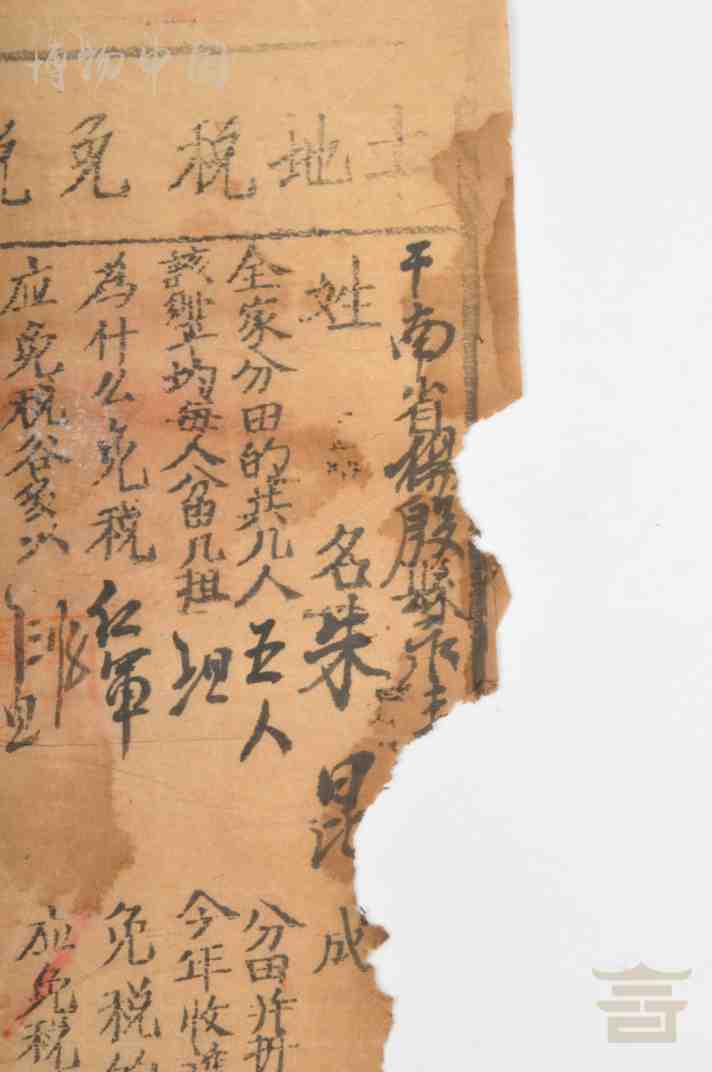 博物中国
土地税免税
干南省杨殷县
姓名朱昆成
全家分田的共几人五人
該鄉平均每人分田几担
為什么免税红軍
应免税谷多少
分田共折
今年收
免税
应免税